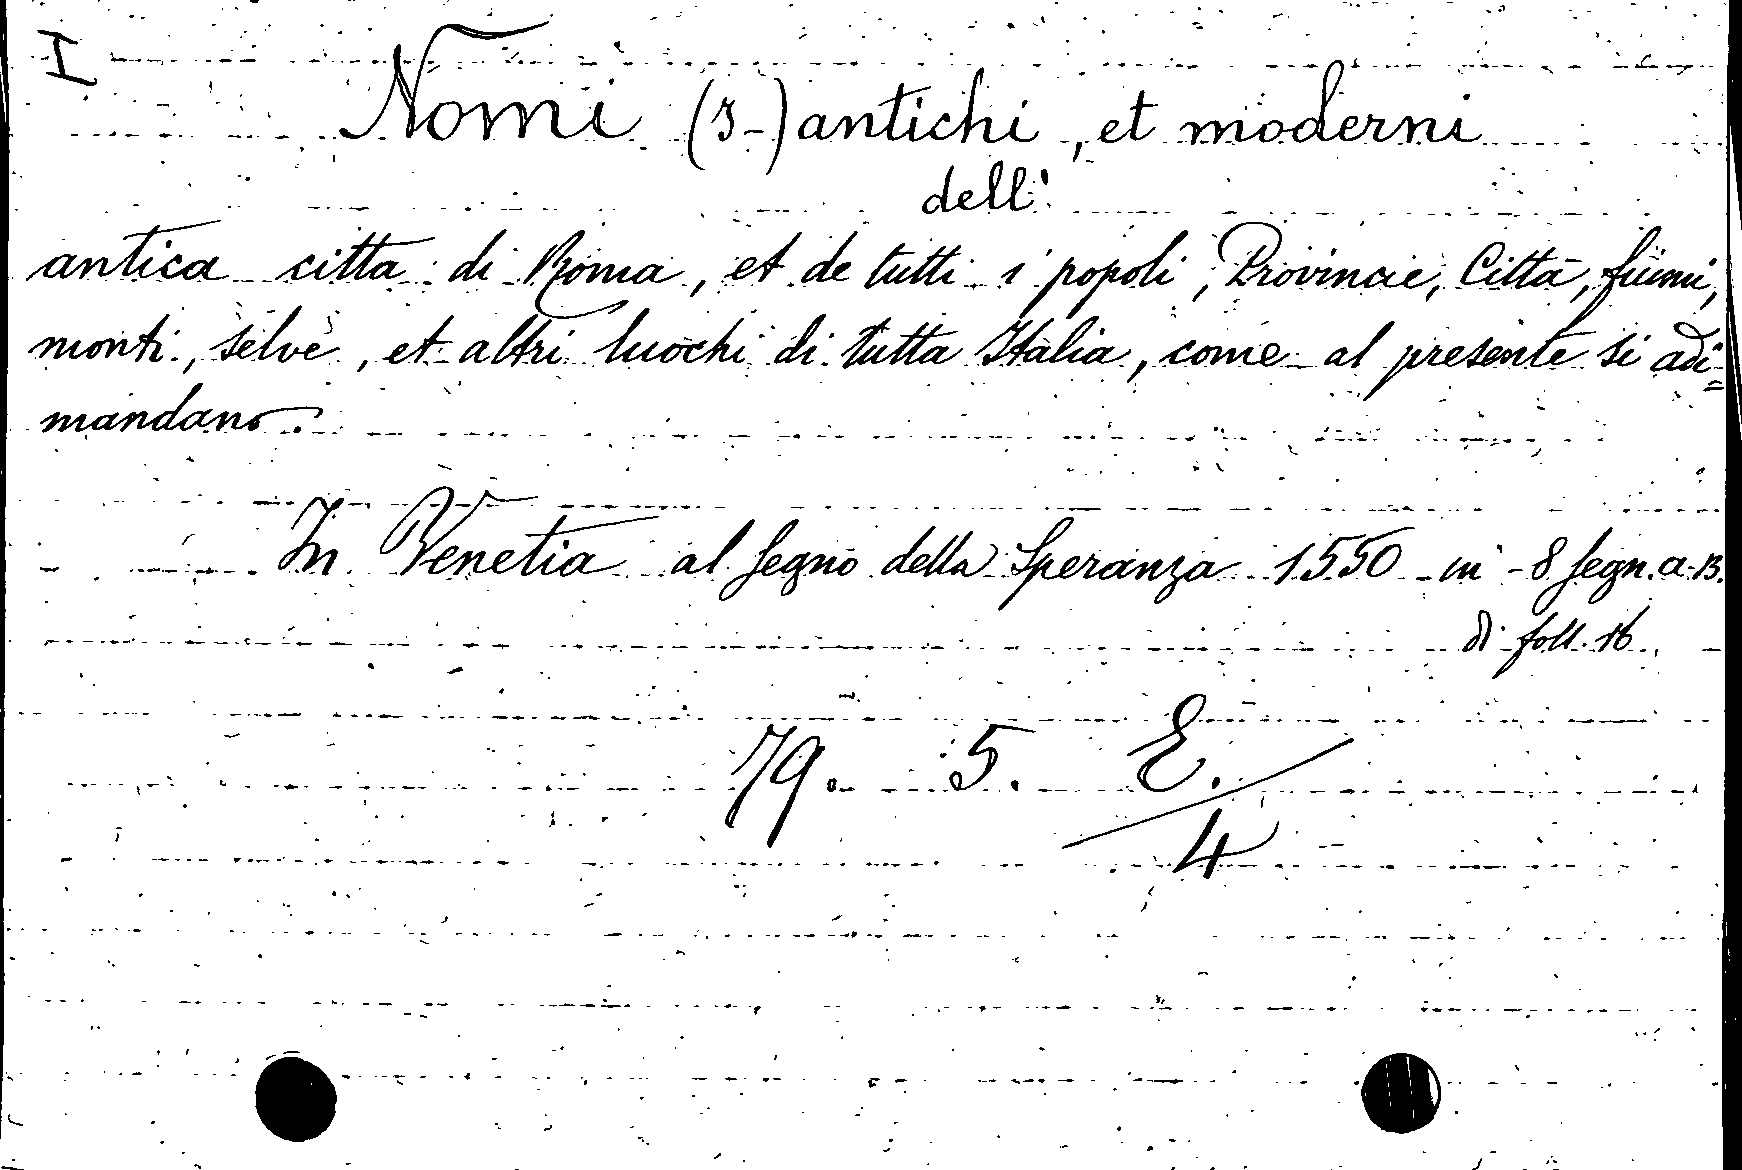 I
Nomi (I-) antichi, et moderni
dell'
antica citta di Roma, et de tutti i popoli, Provincie, Città, fiumi,
monti, selve, et altri luochi di tutta Italia, come al presente si adi=
mandano.
In Venetia al segno della Speranza 1550 in-8 segn. a-B.
di foll. 16
79. 5. E.
4